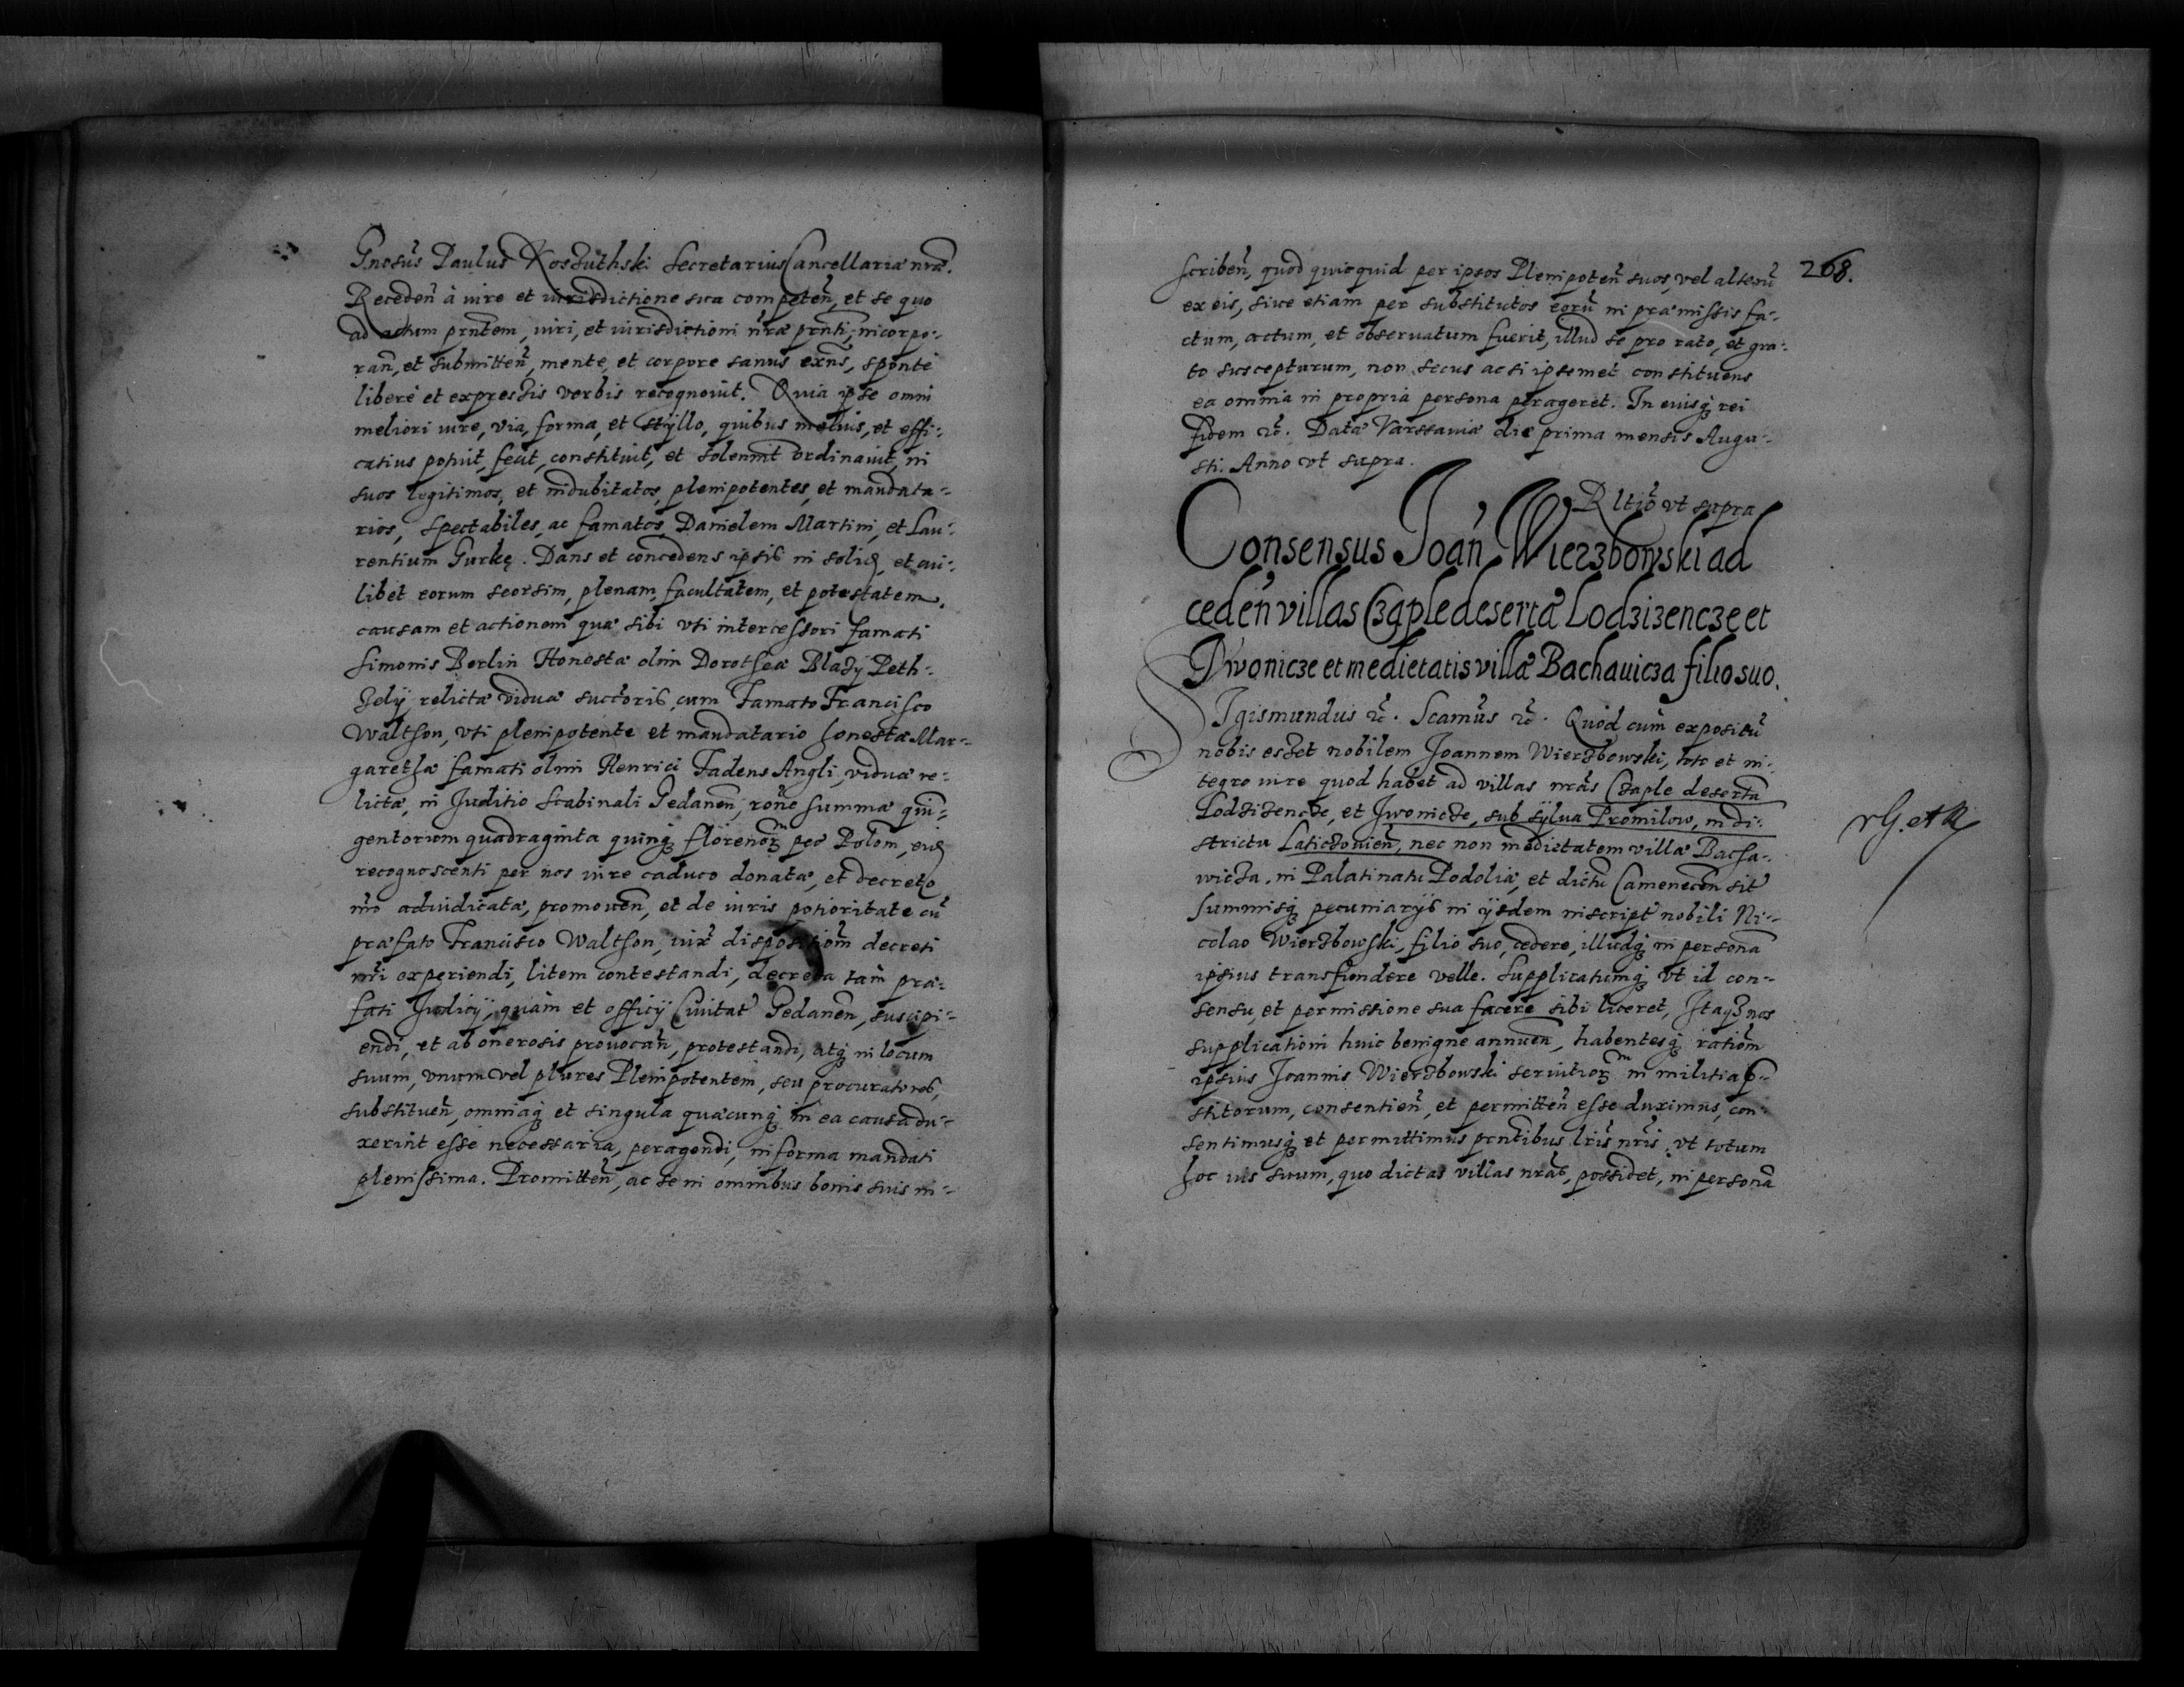 Gnosus Paulus Koszuthski Secretarius Cancellariæ nræ.
Receden à iure et iurisdictione sua competen, et se quo
ad actum prntem, iuri, et iurisdictioni nræ prnti, incorpo-
ran, et submitten, mente, et corpore sanus exns, sponte
liberè et expressis verbis recognouit. Quia ipse omni
meliori iure, via, forma, et styllo, quibus melius, et effi-
catius potuit, fecit, constituit, et solenmt ordinauit, in
suos legitimos, et indubitatos, plenipotentes, et mandata-
rios, spectabiles, ac famatos Danielem Martini, et Lau-
rentium Gurkę. Dans et concedens ipsis in solid, et cui-
libet eorum seorsim, plenam, facultatem, et potestatem,
causam et actionem quæ sibi vti intercessori famati
Simonis Berlin Honestæ olim Dorotheæ Blazÿ Peth-
zelÿ relictæ viduæ succoris, cum Famato Francisco
Waltson, vti plenipotente et mandatario honestæ Mar-
garethæ famati olim Henrici Fadens Angli, viduæ re-
lictæ, in Juditio Scabinali Gedanen, rone summæ quin-
gentorum quadraginta quinq florenorum pec Polom, eid
recognoscenti per nos iure caduco donatæ, et decreto
nro adiudicatæ, promouen, et de iuris potioritate cu
præfato Francisco Waltson, iux dispositiom decreti
nri experiendi, litem contestandi, decreta tam præ-
fati Judicÿ, quàm et officÿ Ciuitat Gedanen, suscipi-
endi, et ab onerosis prouocan, protestandi, atq in locum
suum, vnum vel plures Plenipotentem, seu procuratores,
substituen, omniaq et singula quæcunq in ea causa du-
xerint esse necessaria, peragendi, in forma mandati
plenissima. Promitten, ac se in omnibus bonis suis in-
268.
scriben, quod quicquid per ipsos Plenipoten suos, vel alteru
ex eis, siue etiam per substitutos eoru in præmissis fa-
ctum, actum, et obseruatum fuerit, illud se pro rato, et gra-
to suscepturum, non secus ac si ipsemet constituens
ea omnia in propria persona perageret. In cuiusq rei
fidem etc. Datæ Varssauiæ die prima mensis Augu-
sti. Anno vt supra.
Rltio vt supra
Consensus Joan Wierzbowski ad
ceden villas Czaple deserta Lodzizencze et
Jwonicze et medietatis villæ Bachauicza filio suo.
Sigismundus etc. Scamus etc. Quod cum expositu
nobis esset nobilem Joannem Wierzbowski, toto et in-
tegro iure quod habet ad villas nras Czaple deserta
Lodzizencze, et Jwonicze, sub sylua Promilow, in di-
strictu Laticzouien, nec non medietatem villæ Bacha-
wicza, in Palatinatu Podoliæ, et dictu Camenecen sit
Summisq pecuniarÿs in ÿsdem inscript nobili Ni-
colao Wierzbowski, filio suo, cedere, illudq in persona
ipsius transfundere velle. Supplicatumq vt id con-
sensu, et permissione sua facere sibi liceret, Itaq nos
supplicationi huic benigne annuen, habentesq ratiom
ipsius Joannis Wierzbowski seruitiorum in militia p-
stitorum, consentien, et permitten esse duximus, con-
sentimusq et permittimus prntibus lris nris. vt totum
hoc ius suum, quo dictas villas nras, possidet, in persona